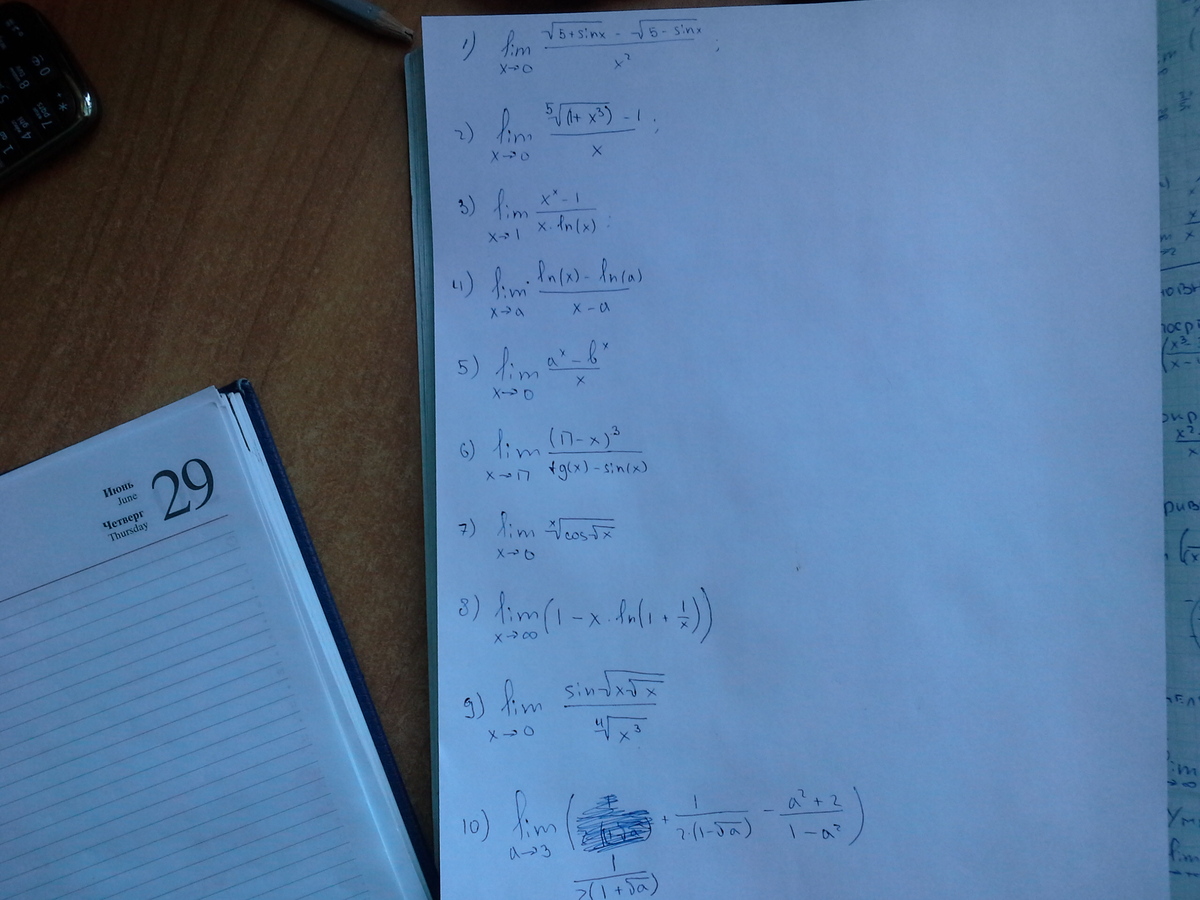 1) lim x→0 (√(5+sinx) - √(5-sinx)) / x² ;
2) lim x→0 (⁵√(1+x³) - 1) / x ;
3) lim x→1 (xˣ - 1) / (x·ln(x)) ;
4) lim x→a (ln(x) - ln(a)) / (x - a)
5) lim x→0 (aˣ - bˣ) / x
6) lim x→π (π - x)³ / (tg(x) - sin(x))
7) lim x→0 ˣ√(cos√x)
8) lim x→∞ (1 - x·ln(1 + 1/x))
9) lim x→0 sin√(x√x) / ⁴√(x³)
10) lim a→3 ( 1/(2(1+√a)) + 1/(2·(1-√a)) - (a²+2)/(1-a²) )
Июнь
June
Четверг
Thursday
29